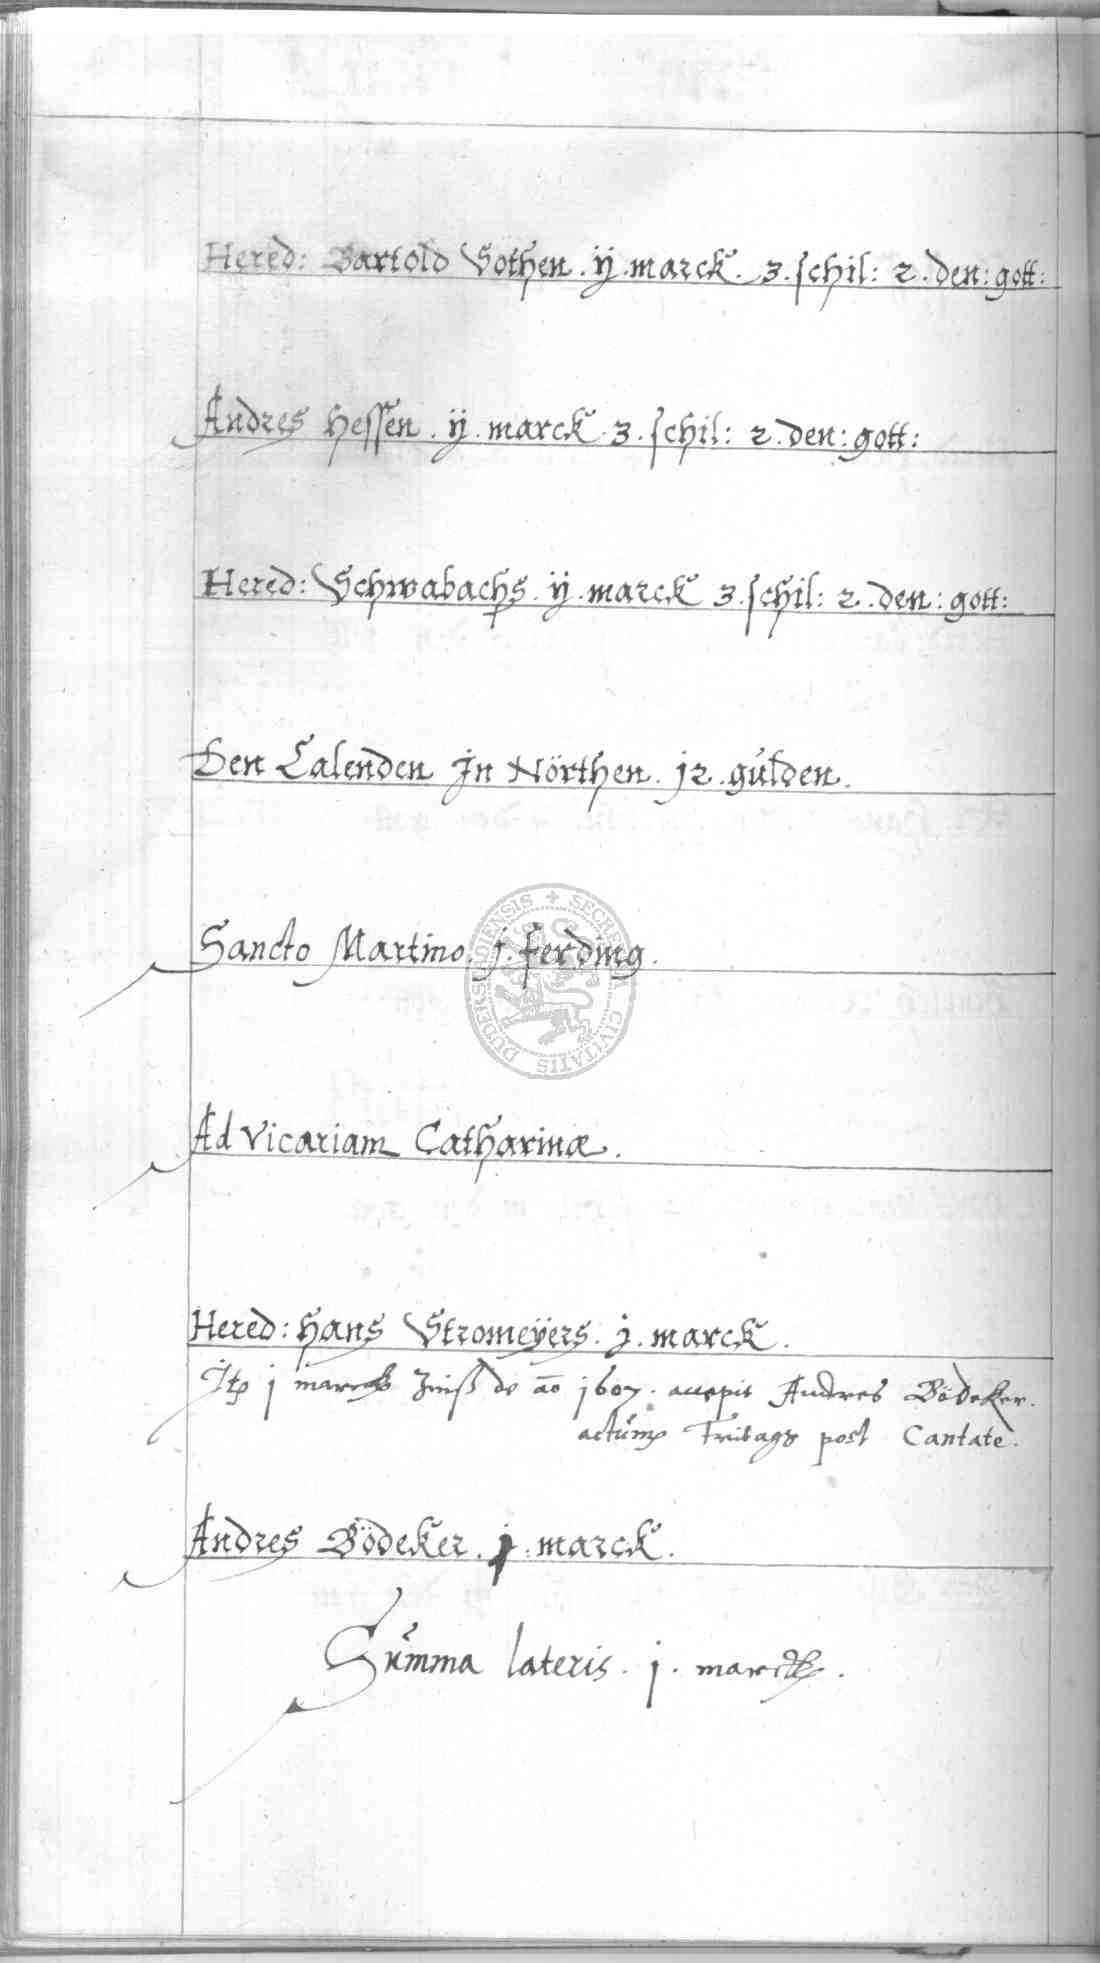 Hered: Bartold Sothen. ÿ. marck. 3. schil: 2. den: gott:
Andres Hessen. ÿ. marck. 3. schil: 2. den: gott:
Hered: Schwabachs. ÿ. marck 3. schil: 2. den: gott:
Den Calenden Jn Nörthen. j2. gulden.
Sancto Martino. j. ferding.
SECRETUM CIVITATIS DUDERSTADIENSIS
Ad Vicariam Catharinæ.
Hered: Hans Stromeÿers. j. marck.
j marck Zinß de ao j607. accepit Andres Bödeker.
actum Freitags post Cantate.
Andres Bödeker. j. marck.
Summa lateris. j. marck.